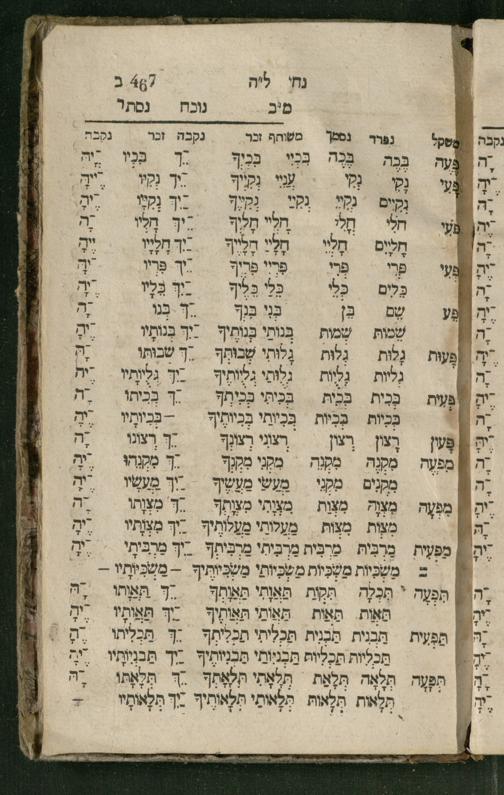 נחי ל״ה 467 ב
מ״ב נוכח נסתר
משקל נפרד נסמך משותף זכר נקבה זכר נקבה
פָּעֶה בָּכֶה בְּכֵה בִּכְיִי בִּכְיֵךָ ־ֵךְ בִּכְיוֹ ־ָהּ
פָּעִי נָקִי נְקִי עֲנִיִּי נְקִיֵּךָ ־ֵיךְ נְקִיּוֹ
נְקִיִּים נְקִיֵּי נְקִיַּי נְקִיֶּיךָ ־ַיִךְ נְקִיָּיו ־ֶיהָ
חלי חֳלִי חָלְיִי חָלְיֵךָ ־ֵיךְ חָלְיוֹ ־ָהּ
חֳלָיִים חֳלָיֵי חֳלָיַי חֳלָיֶיךָ ־ַיִךְ חֳלָיָיו
פְּעִי פְּרִי פְּרִי פִּרְיִי פִּרְיֵךָ ־ֵיךְ פִּרְיוֹ
כֵּלִים כְּלֵי כֵּלַי כֵּלֶיךָ ־ַיִךְ כֵּלָיו ־ֶיהָ
פֵּעַ שֵׁם בֵּן בְּנִי בִּנְךָ ־ֵךְ בְּנוֹ ־ָהּ
שֵׁמוֹת שְׁמוֹת בְּנוֹתַי בְּנוֹתֶיךָ ־ַיִךְ בְּנוֹתָיו ־ֶיהָ
פָּעוּת גָּלוּת גָּלוּת גָּלוּתִי שְׁבוּתְךָ ־ֵךְ שְׁבוּתוֹ ־ָהּ
גליות גָּלֻיּוֹת גָּלֻיּוֹתַי גָּלֻיּוֹתֶיךָ ־ַיִךְ גָּלֻיּוֹתָיו ־ֶיהָ
פְּעִית בְּכִית בְּכִית בְּכִיתִי בְּכִיתְךָ ־ֵךְ בְּכִיתוֹ ־ָהּ
בְּכִיּוֹת בְּכִיּוֹת בְּכִיּוֹתַי בְּכִיּוֹתֶיךָ — בְּכִיּוֹתָיו ־ֶיהָ
פָּעוֹן רָצוֹן רְצוֹן רְצוֹנִי רְצוֹנְךָ ־ֵךְ רְצוֹנוֹ ־ָהּ
מִפְעֶה מִקְנֶה מִקְנֵה מִקְנִי מִקְנְךָ ־ֵךְ מִקְנֵהוּ
מִקְנִים מִקְנֵי מַעֲשַׂי מַעֲשֶׂיךָ ־ַיִךְ מַעֲשָׂיו ־ֶיהָ
מִפְעָה מִצְוָה מִצְוַת מִצְוָתִי מִצְוָתְךָ ־ֵךְ מִצְוָתוֹ ־ָהּ
מִצְוֹת מִצְוֹת מַעֲלוֹתַי מַעֲלוֹתֶיךָ ־ַיִךְ מִצְוֹתָיו ־ֶיהָ
מִפְעִית מַרְבִּית מַרְבִּית מַרְבִּיתִי מַרְבִּיתְךָ ־ֵיךְ מַרְבִּיתוֹ
מַשְׂכִּיּוֹת מַשְׂכִּיּוֹת מַשְׂכִּיּוֹתַי מַשְׂכִּיּוֹתֶיךָ — מַשְׂכִּיּוֹתָיו —
תִּפְעָה תִּכְלָה תִּקְוַת תַּאֲוָתִי תַּאֲוָתְךָ ־ֵךְ תַּאֲוָתוֹ ־ָהּ
תַּאֲוֹת תַּאֲוֹת תַּאֲוֹתַי תַּאֲוֹתֶיךָ ־ַיִךְ תַּאֲוֹתָיו ־ֶיהָ
תַּפְעִית תַּבְנִית תַּבְנִית תַּכְלִיתִי תַּכְלִיתְךָ ־ֵךְ תַּכְלִיתוֹ ־ָהּ
תַּכְלִיּוֹת תַּכְלִיּוֹת תַּבְנִיּוֹתַי תַּבְנִיּוֹתֶיךָ ־ַיִךְ תַּבְנִיּוֹתָיו ־ֶיהָ
תְּפָעָה תְּלָאָה תְּלָאַת תְּלָאָתִי תְּלָאָתְךָ ־ֵךְ תְּלָאָתוֹ ־ָהּ
תְּלָאוֹת תְּלָאוֹת תְּלָאוֹתַי תְּלָאוֹתֶיךָ ־ַיִךְ תְּלָאוֹתָיו